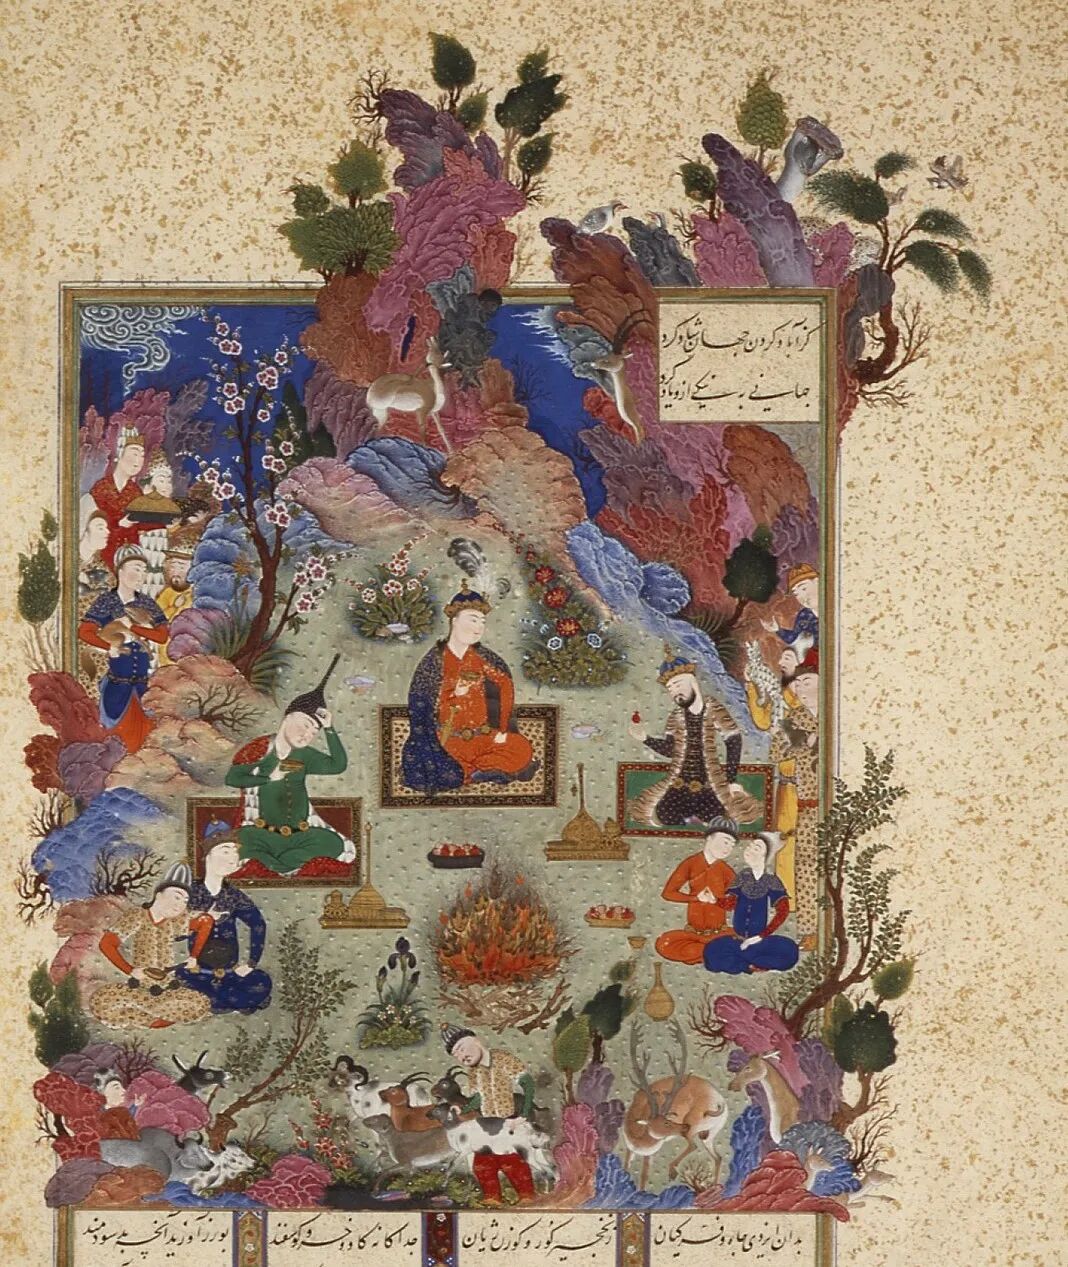 کز آباد کردن جهان شاد کرد
جهانی به نیکی ازو یاد کرد
بدان ایزدی جاه و فر کیان
ز نخجیر کور و کوزن ژیان
جدا کانه کاو و خر و کوسفند
بورز آورید آنچه بد سودمند